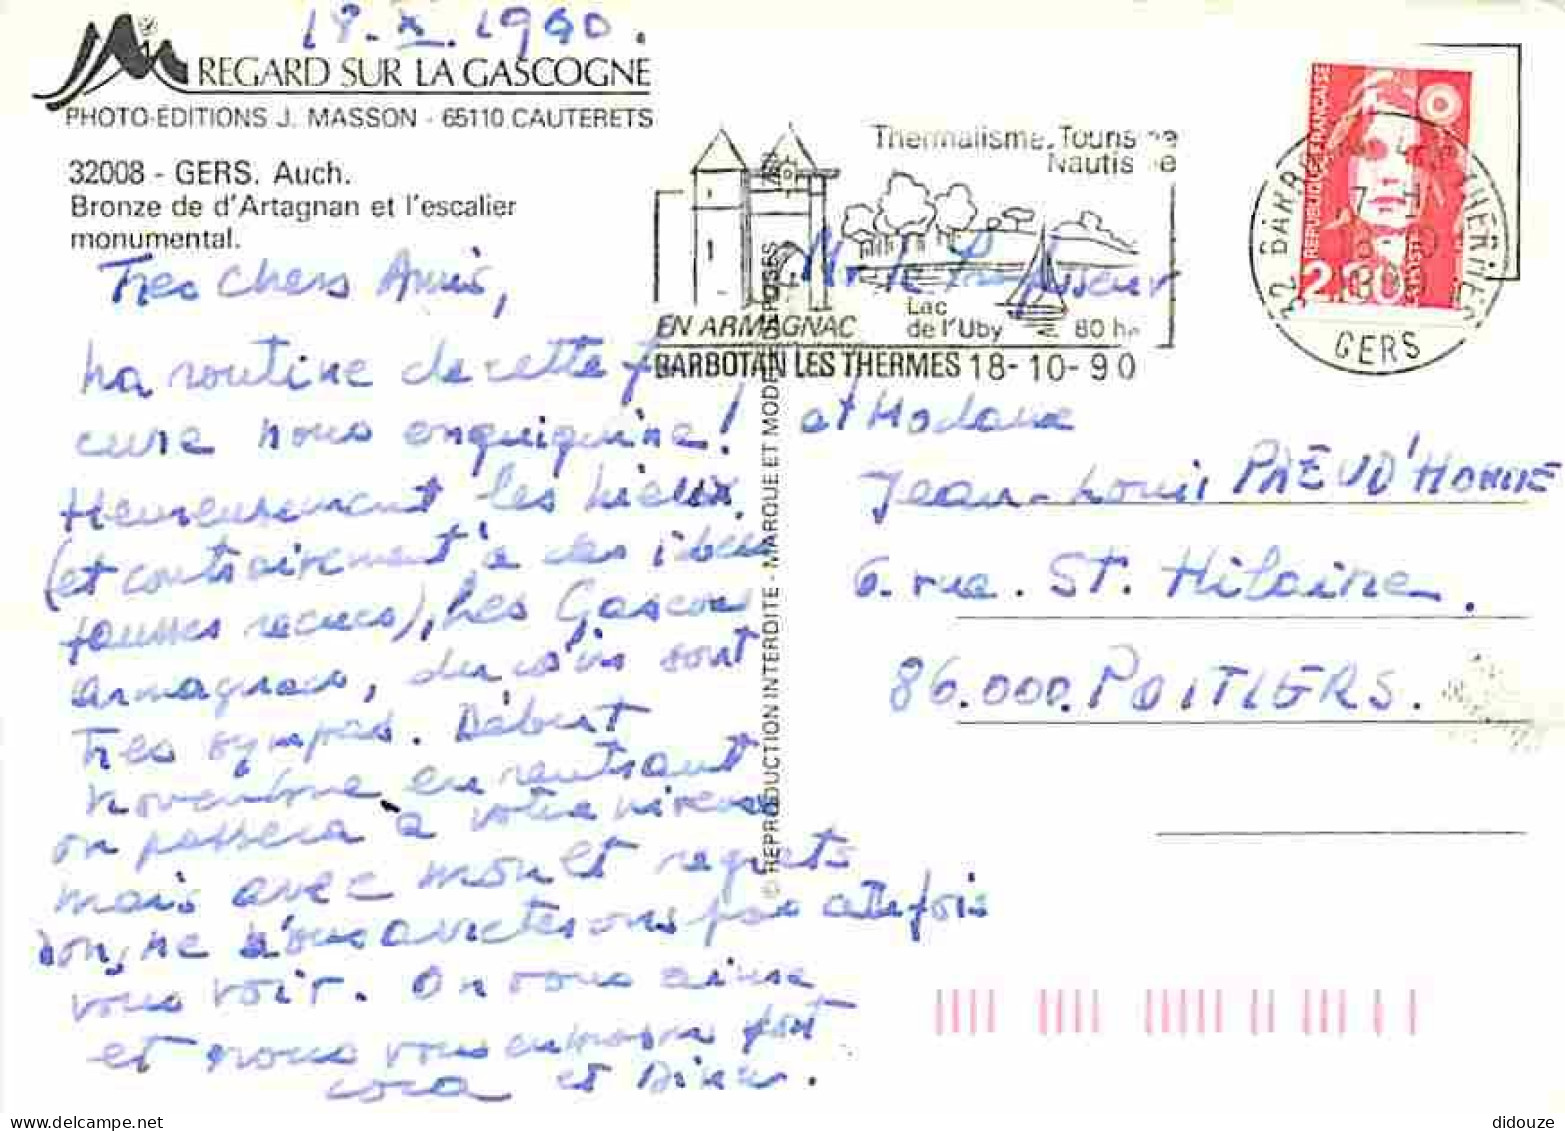 18.X.1990.
REGARD SUR LA GASCOGNE
PHOTO-ÉDITIONS J. MASSON - 65110 CAUTERETS
32008 - GERS. Auch.
Bronze de d'Artagnan et l'escalier
monumental.
Thermalisme. Tourisme
Nautisme
Lac
de l'Uby
80 ha
EN ARMAGNAC
BARBOTAN LES THERMES 18-10-90
RÉPUBLIQUE FRANÇAISE
2,30
32 BARBOTAN LES THERMES
GERS
© REPRODUCTION INTERDITE - MARQUE ET MODÈLE DÉPOSÉS
Tres chers Amis,
La routine de cette
cure nous enquiquine!
Heureusement les lieux
(et contrairement à des idées
fausses recues), Les Gascons
armagnacs, sont
Tres sympas. Début
novembre en rentrant
on passera à votre niveau
mais avec moult regrets
ne nous arreterons pas cette fois
vous voir. On vous aime
et nous vous embrassons fort
coca et
Mr le Professeur
et Madame
Jean-Louis PREUD'HOMME
6. rue. St. Hilaire.
86.000. POITIERS.